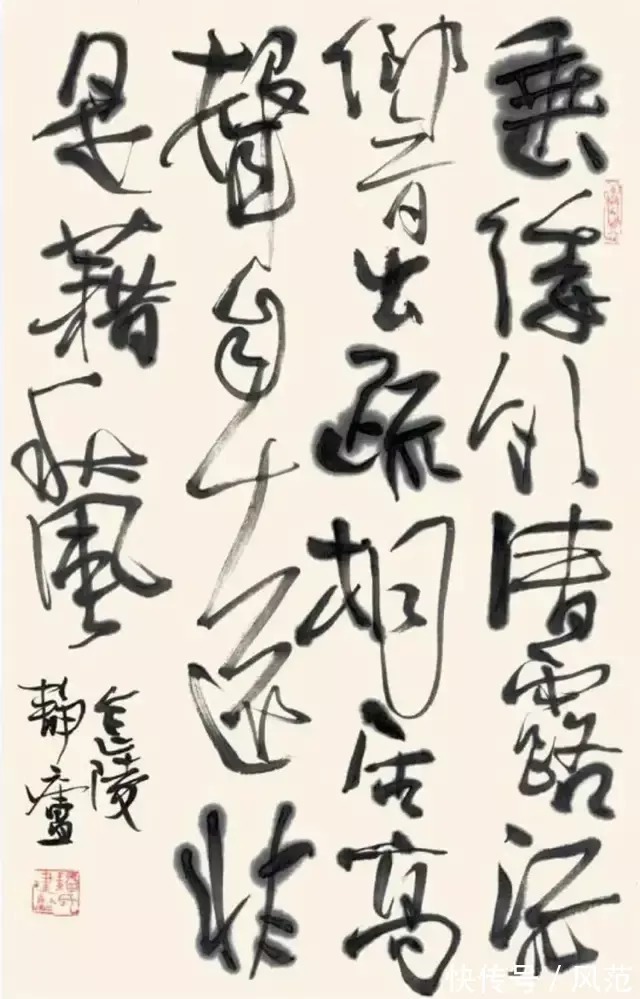 垂緌飲清露流
響出疏桐居高
聲自遠非
是藉秋風
金陵
靜廬
快传号 / 风范